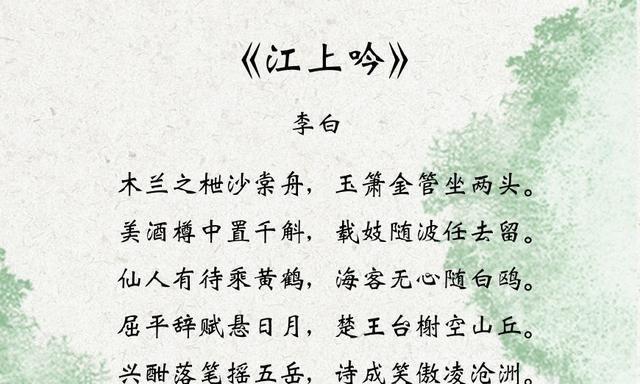 《江上吟》
李白
木兰之枻沙棠舟，玉箫金管坐两头。
美酒樽中置千斛，载妓随波任去留。
仙人有待乘黄鹤，海客无心随白鸥。
屈平辞赋悬日月，楚王台榭空山丘。
兴酣落笔摇五岳，诗成笑傲凌沧洲。